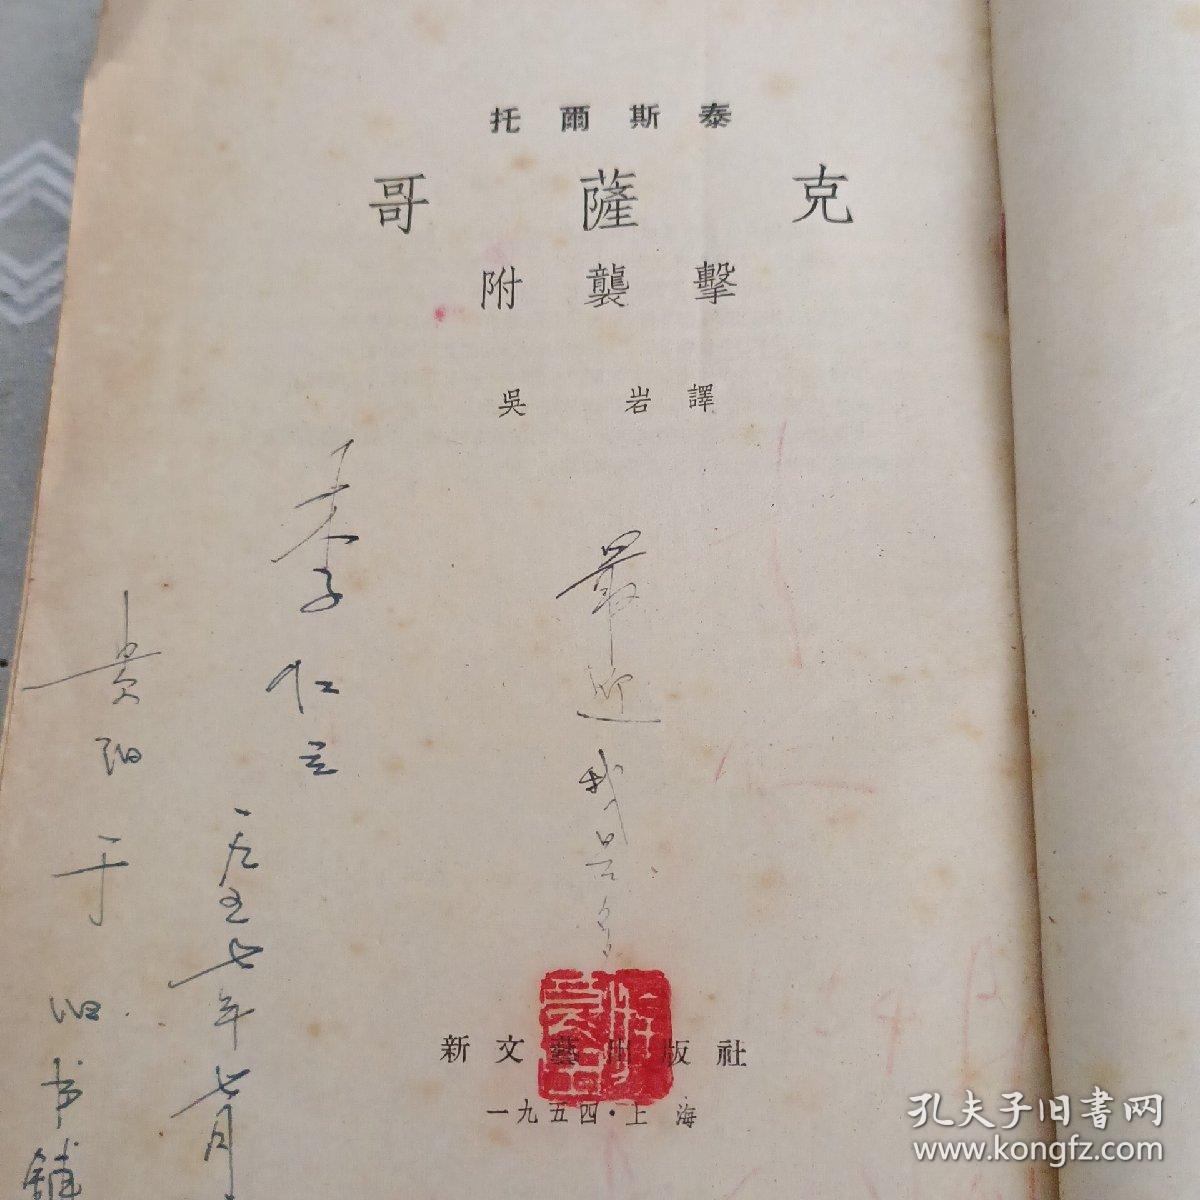 托爾斯泰
哥薩克
附襲擊
吳岩譯
最近我
李仁
一九五七年七月
贵阳于旧书铺
新文藝出版社
一九五四·上海
孔夫子旧書网
www.kongfz.com